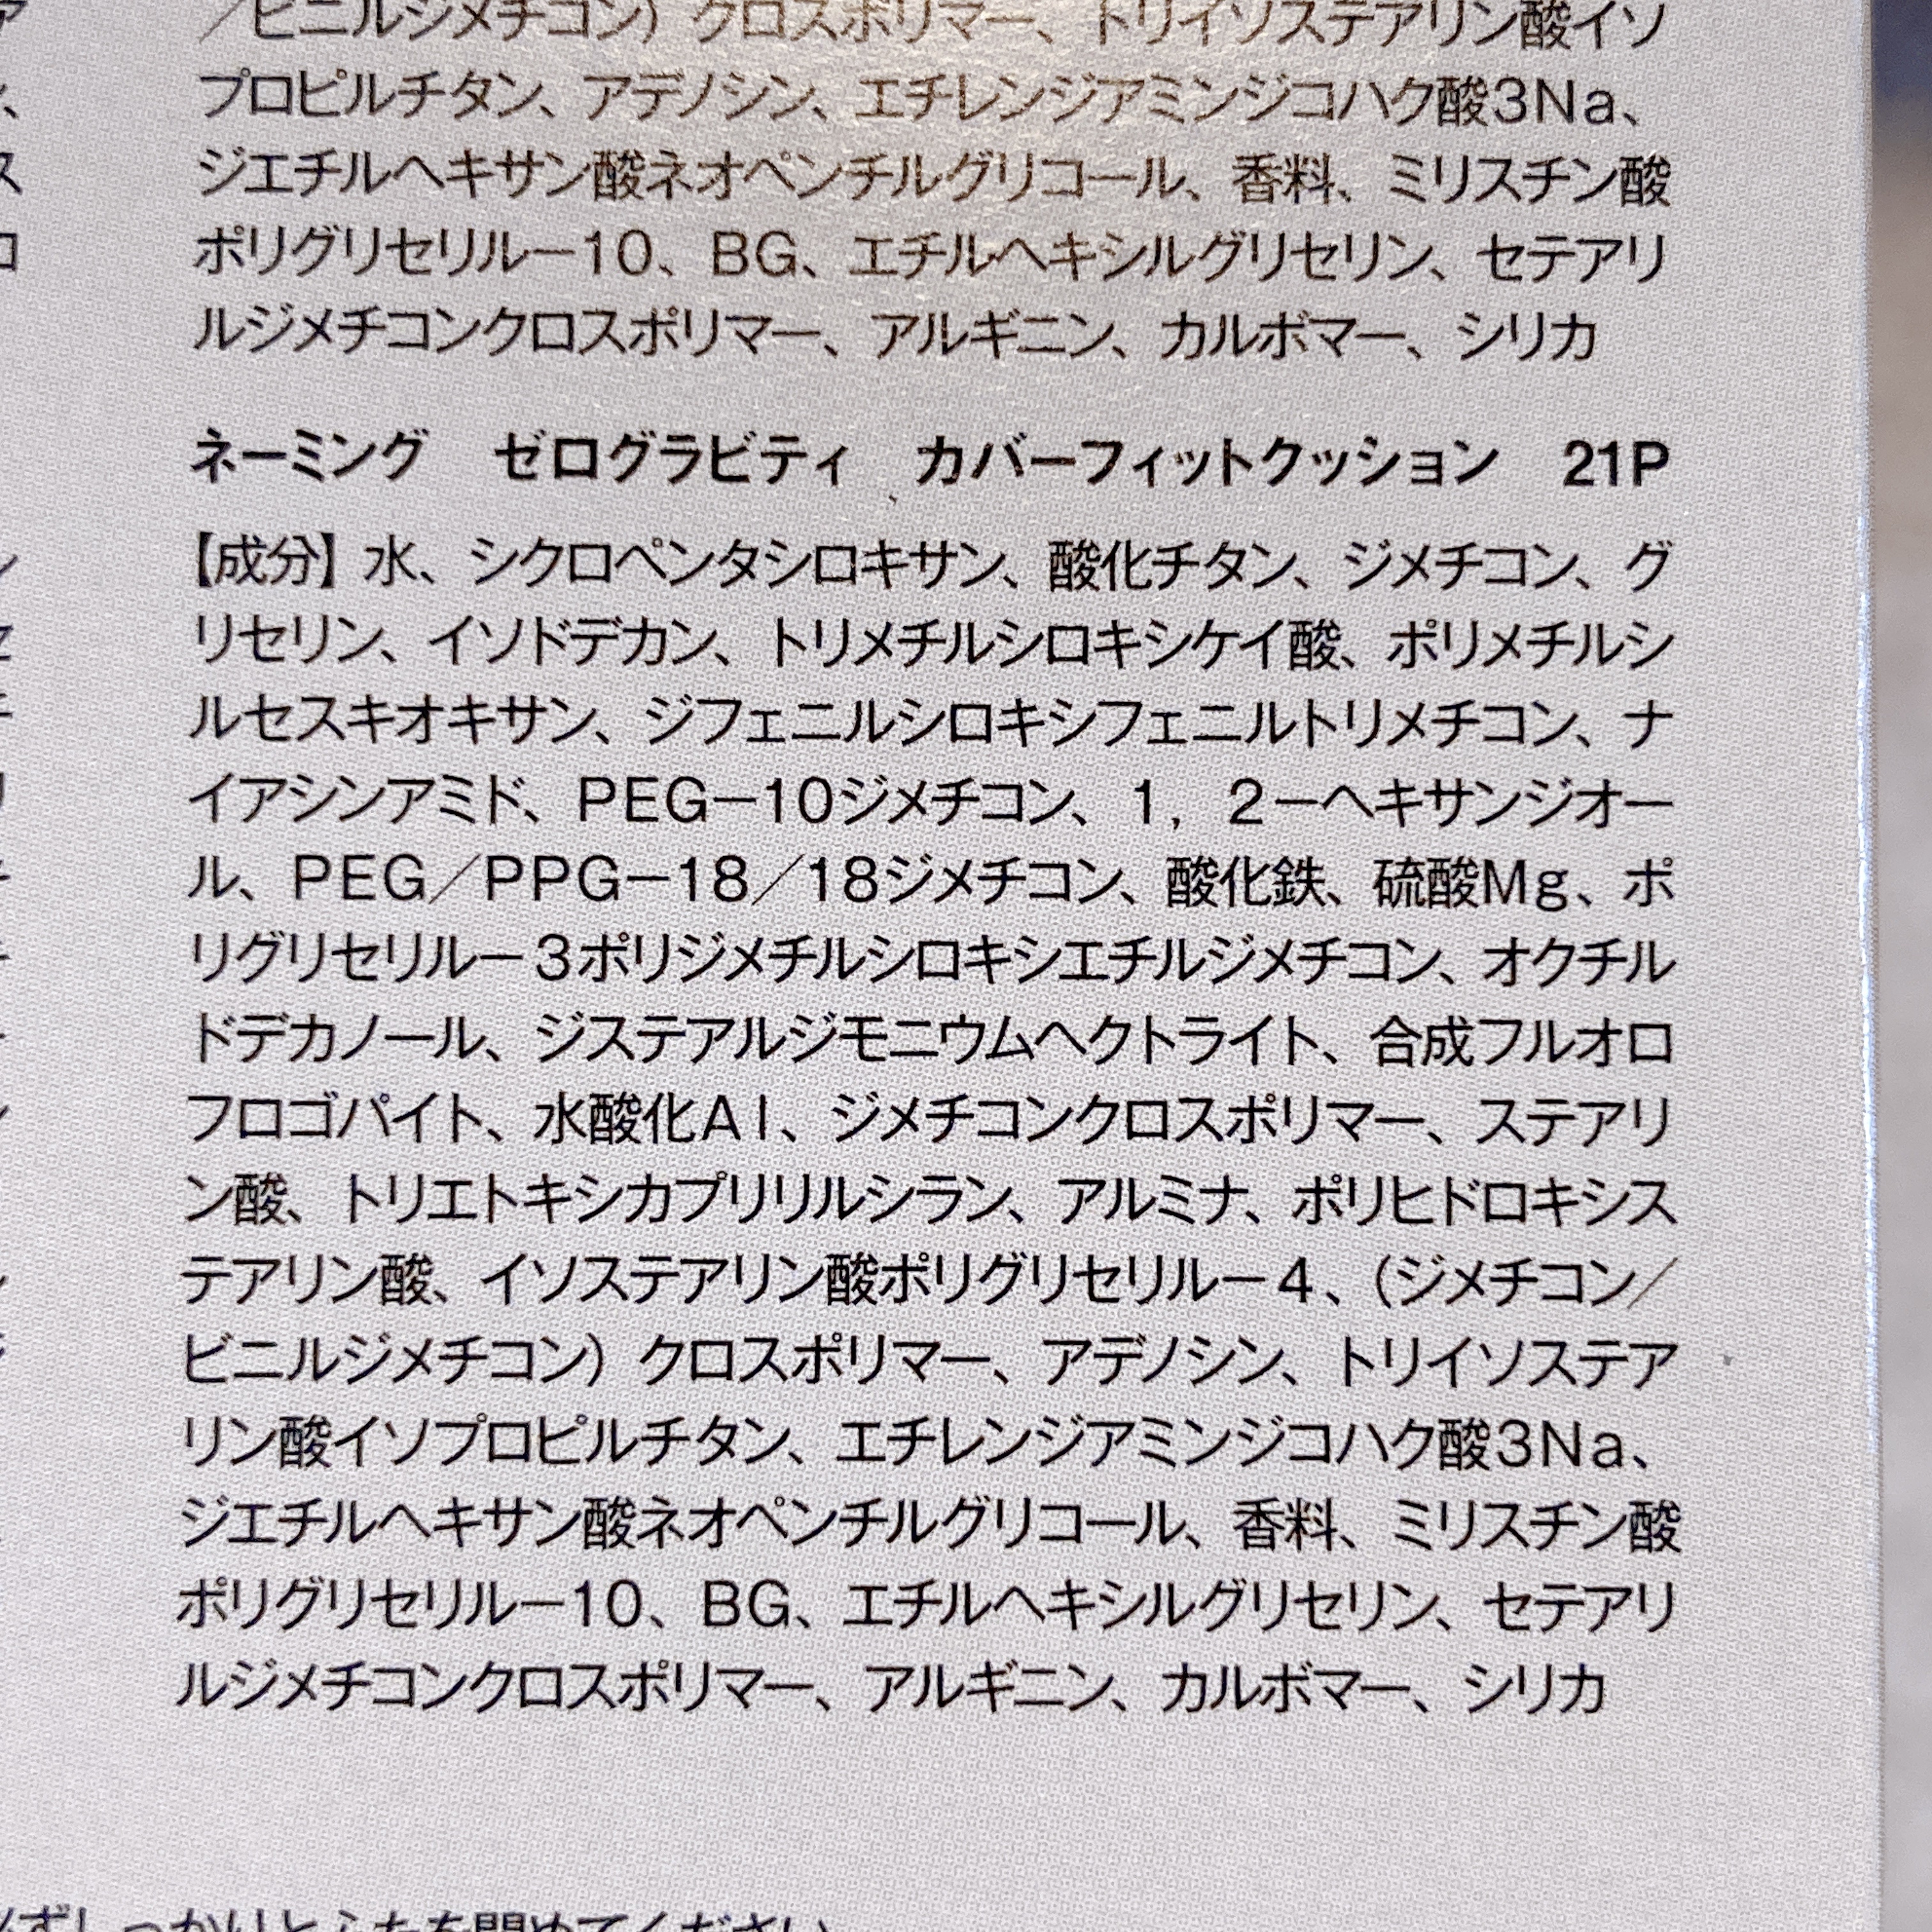 ／ビニルジメチコン）クロスポリマー、トリイソステアリン酸イソ
プロピルチタン、アデノシン、エチレンジアミンジコハク酸3Na、
ジエチルヘキサン酸ネオペンチルグリコール、香料、ミリスチン酸
ポリグリセリルー10、BG、エチルヘキシルグリセリン、セテアリ
ルジメチコンクロスポリマー、アルギニン、カルボマー、シリカ
ネーミング　ゼログラビティ　カバーフィットクッション　21P
【成分】水、シクロペンタシロキサン、酸化チタン、ジメチコン、グ
リセリン、イソドデカン、トリメチルシロキシケイ酸、ポリメチルシ
ルセスキオキサン、ジフェニルシロキシフェニルトリメチコン、ナ
イアシンアミド、PEG－10ジメチコン、1，2－ヘキサンジオー
ル、PEG／PPG－18／18ジメチコン、酸化鉄、硫酸Mg、ポ
リグリセリルー3ポリジメチルシロキシエチルジメチコン、オクチル
ドデカノール、ジステアルジモニウムヘクトライト、合成フルオロ
フロゴパイト、水酸化Al、ジメチコンクロスポリマー、ステアリ
ン酸、トリエトキシカプリリルシラン、アルミナ、ポリヒドロキシス
テアリン酸、イソステアリン酸ポリグリセリルー4、（ジメチコン／
ビニルジメチコン）クロスポリマー、アデノシン、トリイソステア
リン酸イソプロピルチタン、エチレンジアミンジコハク酸3Na、
ジエチルヘキサン酸ネオペンチルグリコール、香料、ミリスチン酸
ポリグリセリルー10、BG、エチルヘキシルグリセリン、セテアリ
ルジメチコンクロスポリマー、アルギニン、カルボマー、シリカ